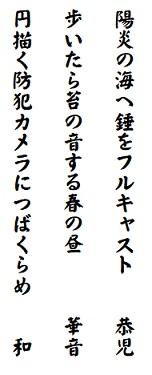 陽炎の海へ錘をフルキャスト 恭児
歩いたら苔の音する春の昼 華音
円描く防犯カメラにつばくらめ 和